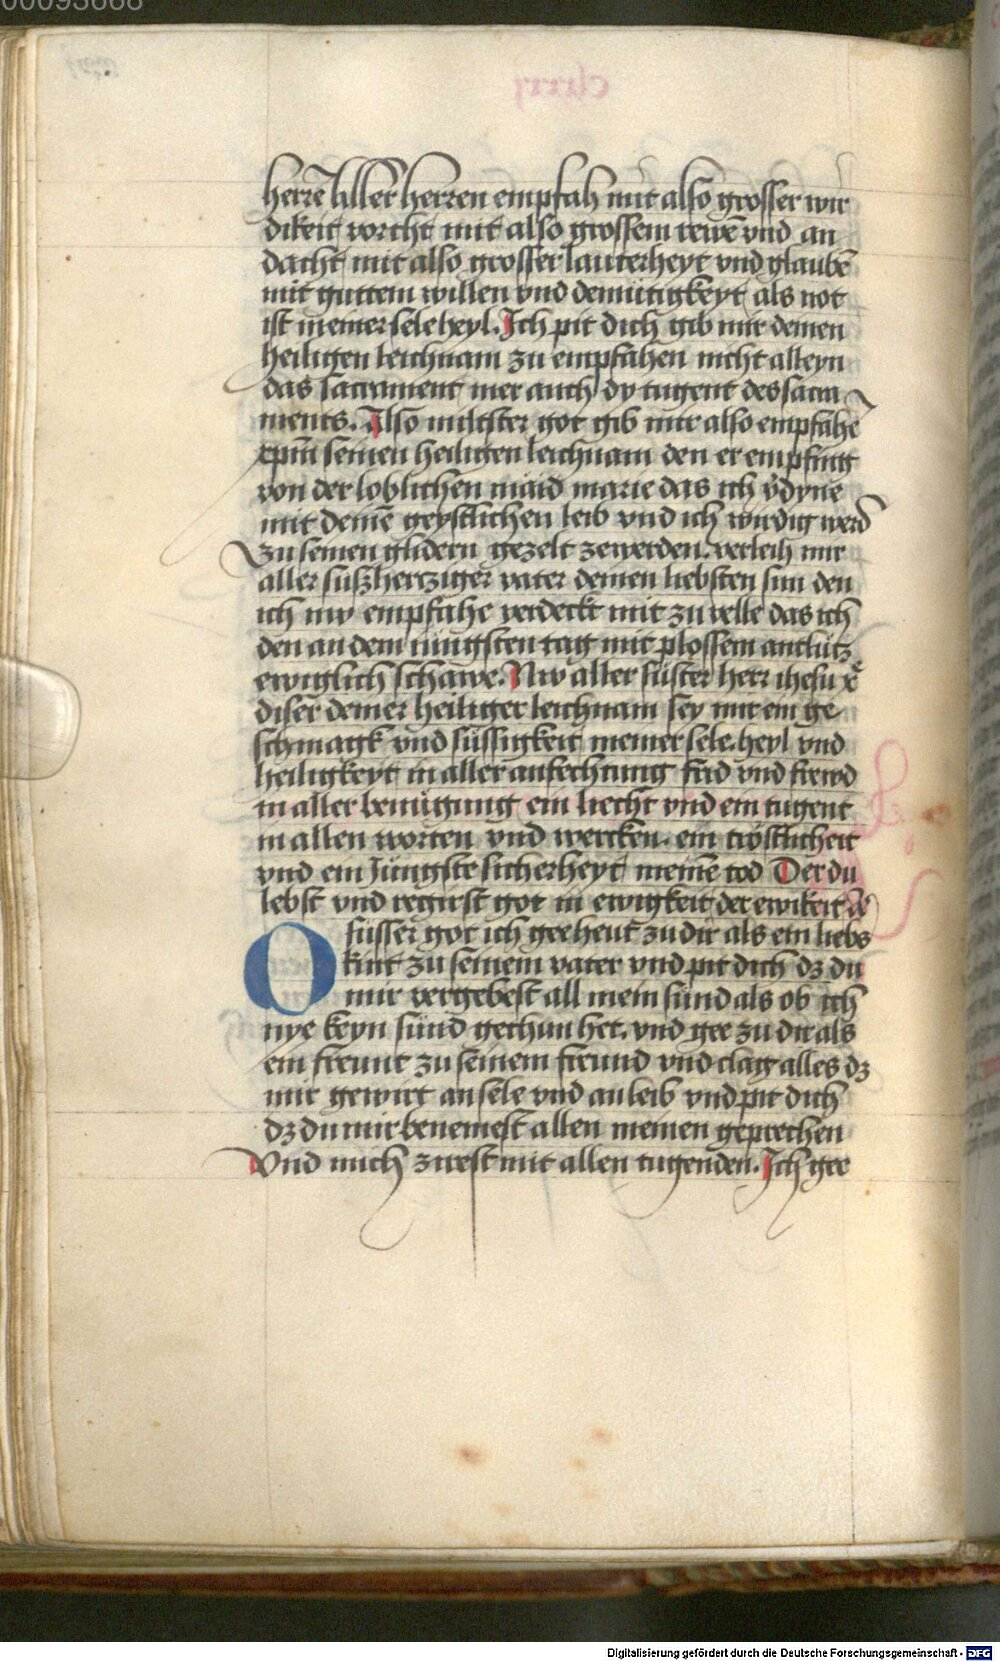 00093668
herrē aller herren empfah mit also grosser wir
dikeit vorcht mit also grossem rewē vnd an
dacht mit also grosser lauterheyt vnd glaubē
mit guttem willen vnd demütigkeyt als not
ist meiner sele heyl. Ich pit dich gib mir deinen
heiligen leichnam zu empfahen nicht alleyn
das sacrament mer auch dy tugent des sacra
ments. Also miltster got gib mir also empfahē
xpm̄ seinen heiligen leichnam den er empfing
von der loblichen maid marie das ich
mit deinē geystlichen leib vnd ich wirdig werd
zu seinen glidern gezelt zewerden. verleih mir
aller süßhertziger vater deinen liebsten sun den
ich nw empfahe verdeckt mit zu velle das ich
den an dem iüngsten tag mit plossem antlütz
ewiglich schawe. Nw aller süster herr ihesu xē
diser deiner heiliger leichnam sey mir ein ge
schmack vnd süssigkeit meiner sele. heyl vnd
heiligkeyt in aller anfechtung frid vnd frewd
in aller benügung ein liecht vnd ein tugent
in allen worten vnd wercken. ein tröstlicheit
vnd ein Jüngste sicherheyt meinē tod Der du
lebst vnd regirst got in ewigkeit der ewikeit
O süsser got ich gee heut zu dir als ein liebs
kint zu seinem vater vnd pit dich dz du
mir vergebest all mein sünd als ob ich
nye keyn sünd gethun het. vnd gee zu dir als
ein freunt zu seinem freund vnd clag alles dz
mir gewirt an sele vnd an leib vnd pit dich
dz du mir benemest allen meinen geprechen
Vnd mich zirest mit allen tugenden. Ich gee
Digitalisierung gefördert durch die Deutsche Forschungsgemeinschaft - DFG